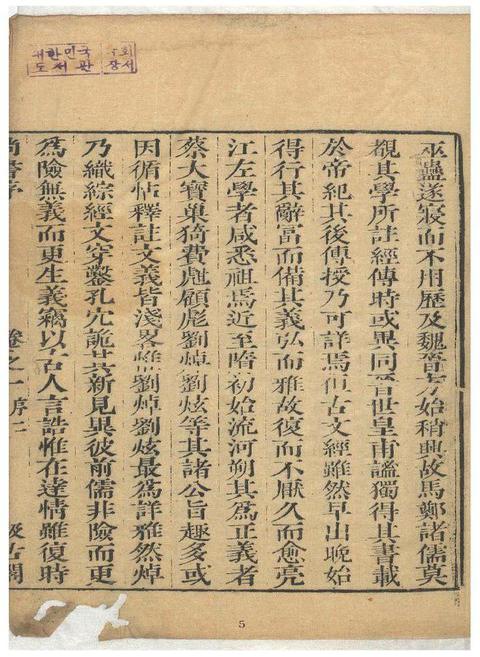 대한민국 국회
도서관 장서
巫蠱遂寢而不用歷及魏晉方始稍興故馬鄭諸儒莫
覩其學所註經傳時或異同晉世皇甫謐獨得其書載
於帝紀其後傳授乃可詳焉但古文經雖然早出晚始
得行其辭富而備其義弘而雅故復而不厭久而愈亮
江左學者咸悉祖焉近至隋初始流河朔其為正義者
蔡大寶巢猗費甝顧彪劉焯劉炫等其諸公旨趣多或
因循帖釋註文義皆淺畧惟劉焯劉炫最為詳雅然焯
乃織綜經文穿鑿孔穴詭其新見異彼前儒非險而更
為險無義而更生義竊以古人言誥惟在達情雖復時
尚書序 卷之一序二 汲古閣
5